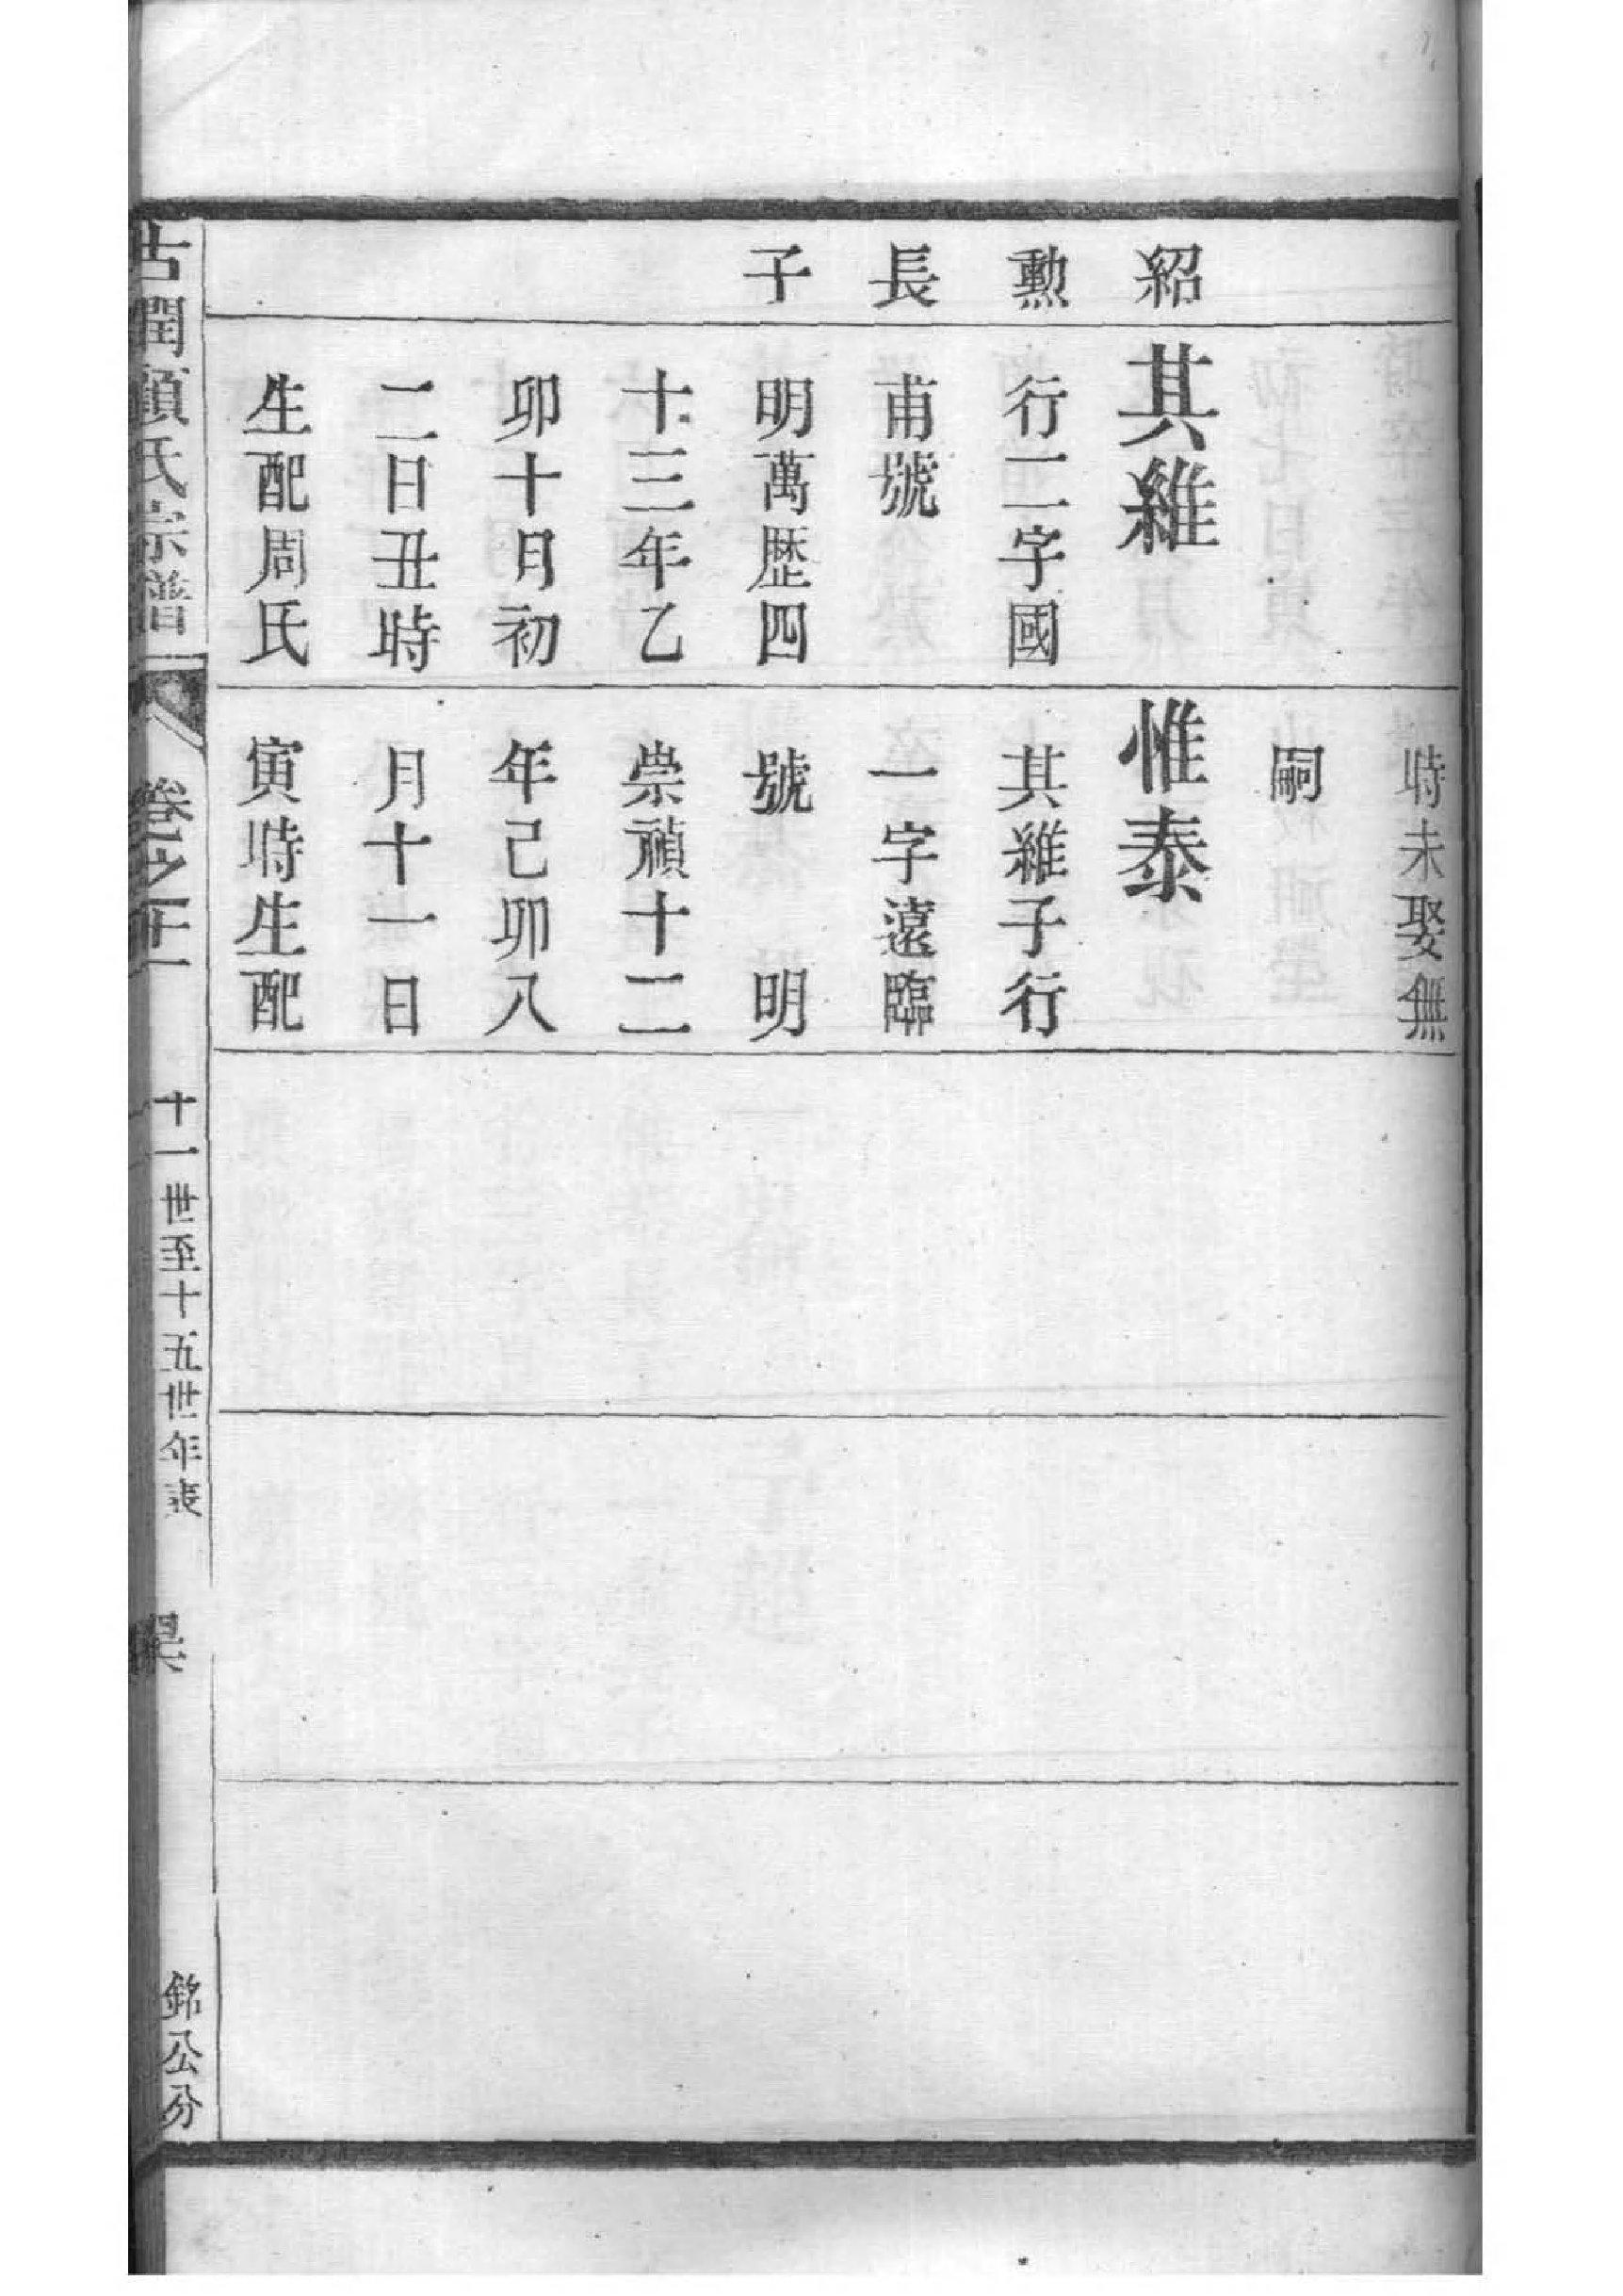 時未娶無
嗣
紹
勲
長
子
其維
行二字國
甫號
明萬歴四
十三年乙
卯十月初
二日丑時
生配周氏
惟泰
其維子行
一字遠臨
號 明
崇禎十二
年己卯八
月十一日
寅時生配
古潤顧氏宗譜
卷之
十一世至十五世年表
銘公分